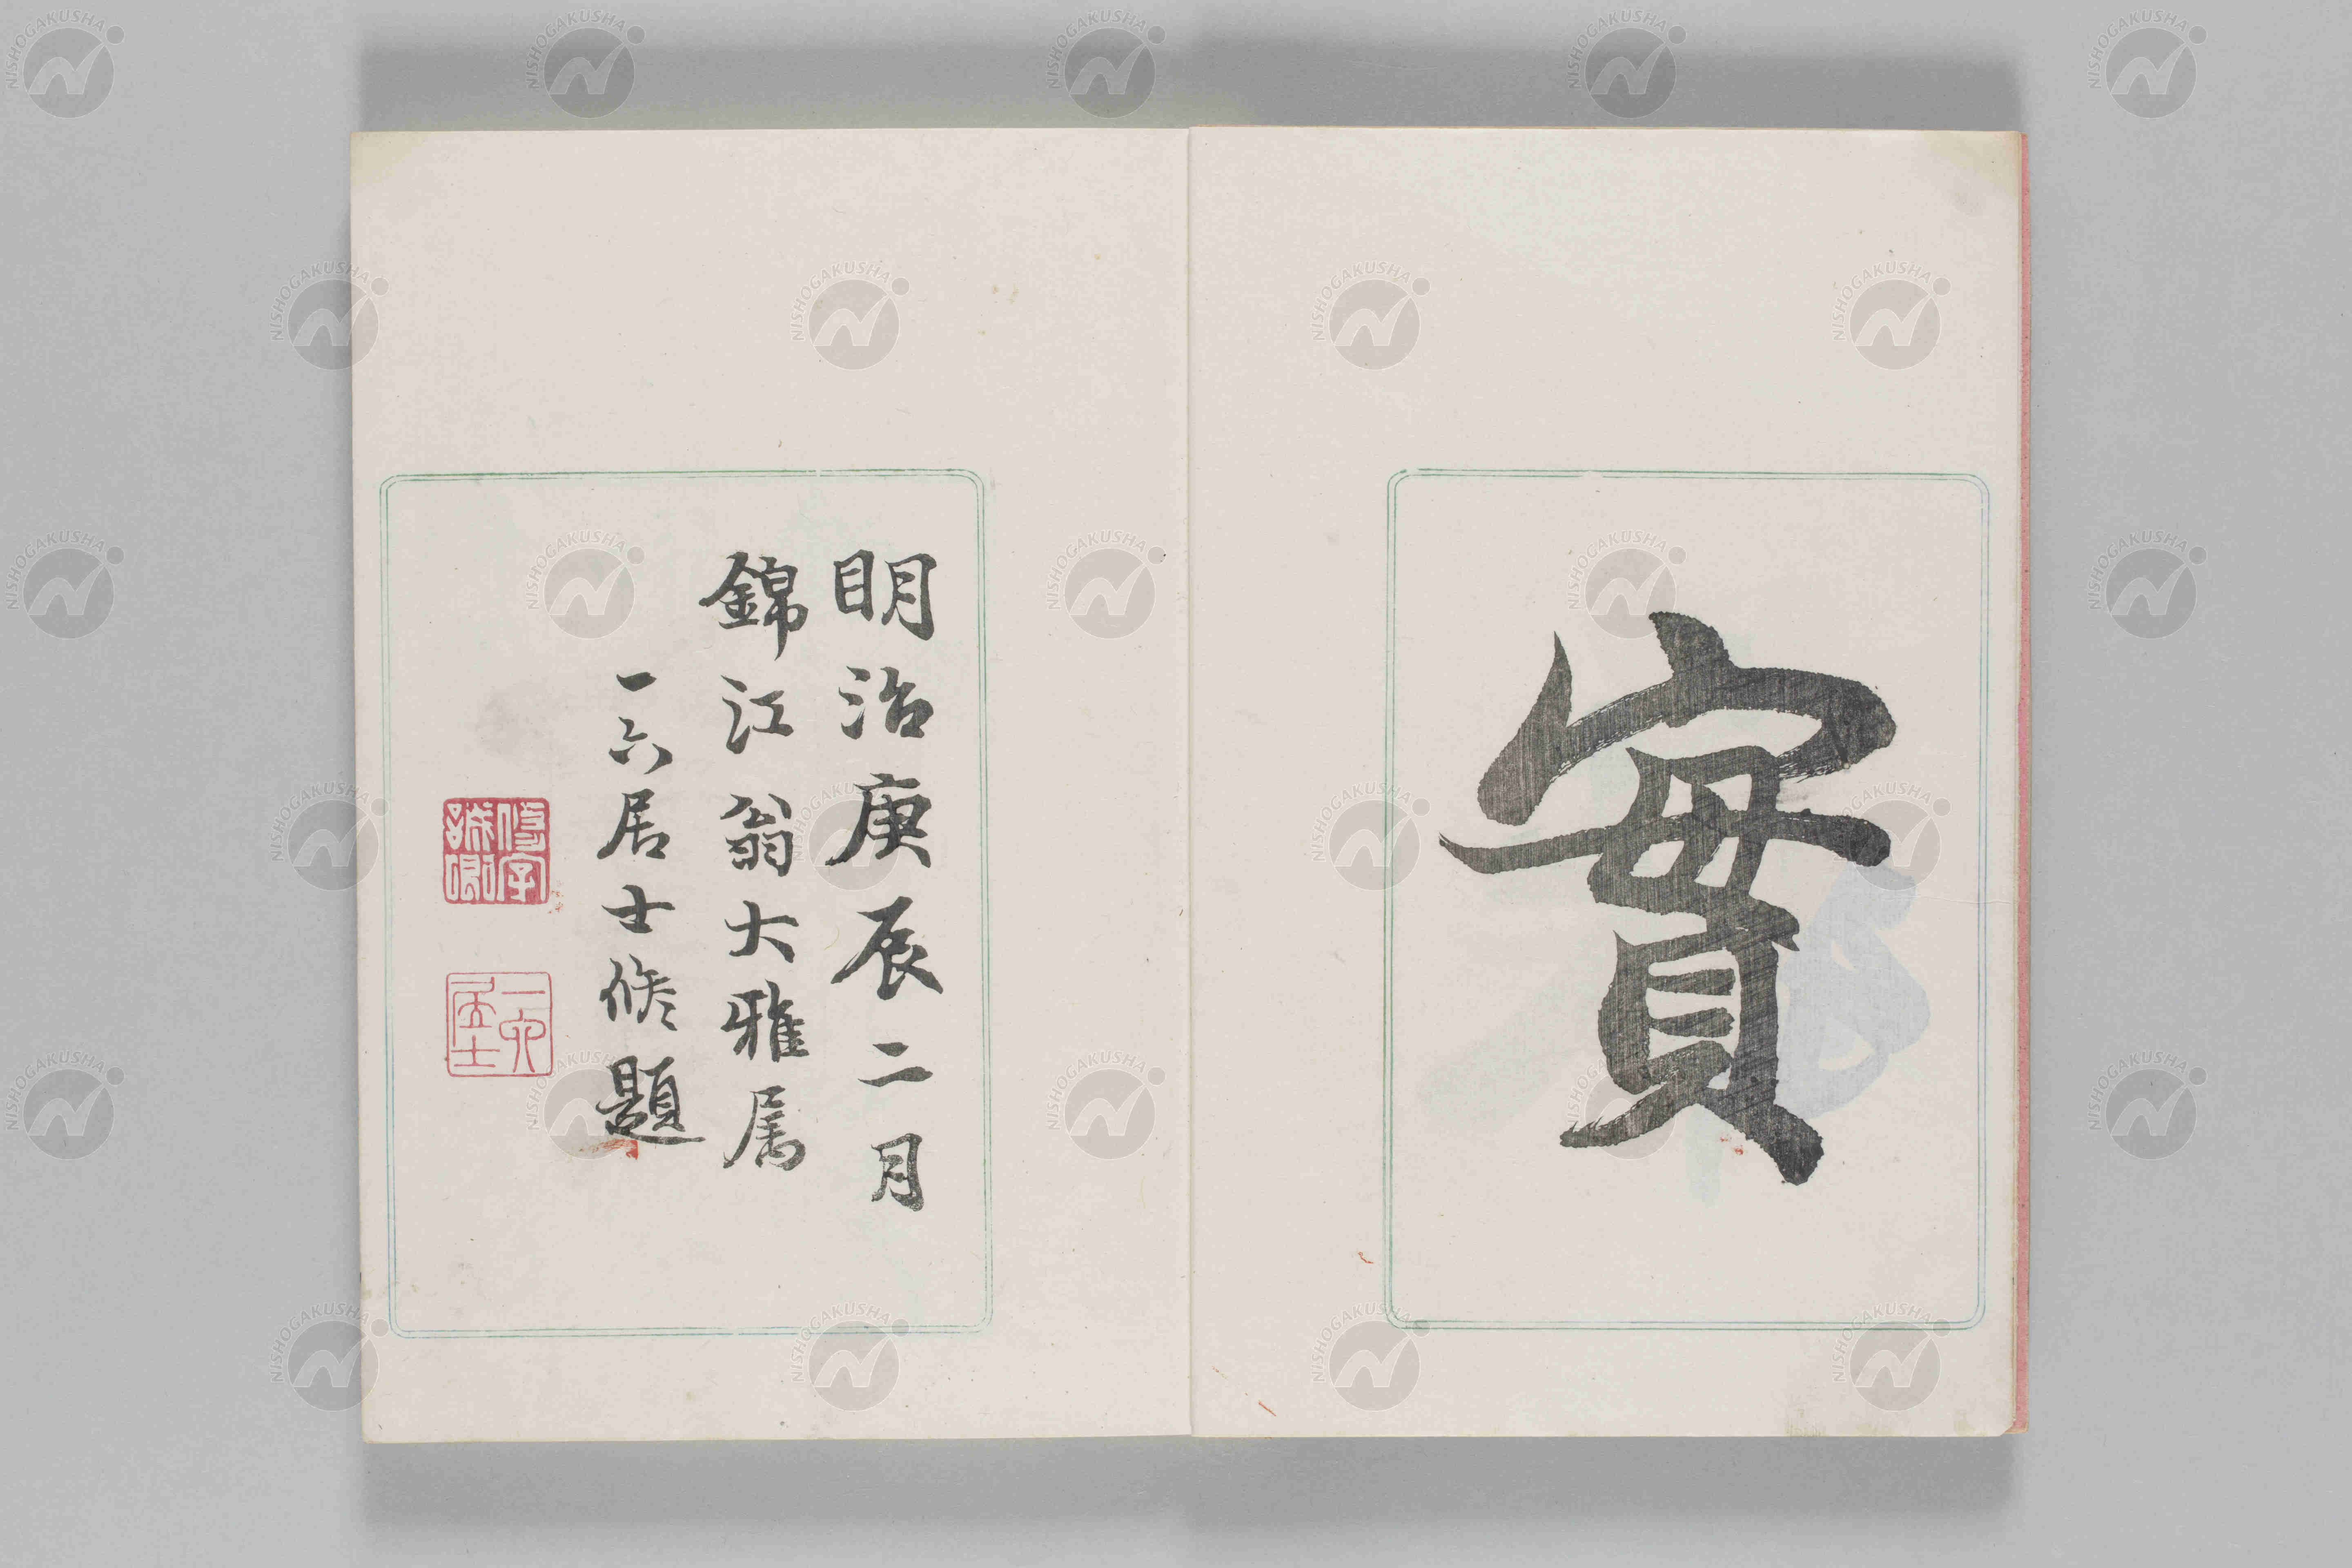 實
明治庚辰二月
錦江翁大雅属
一六居士脩題
修字誠卿
一六居士
NISHOGAKUSHA